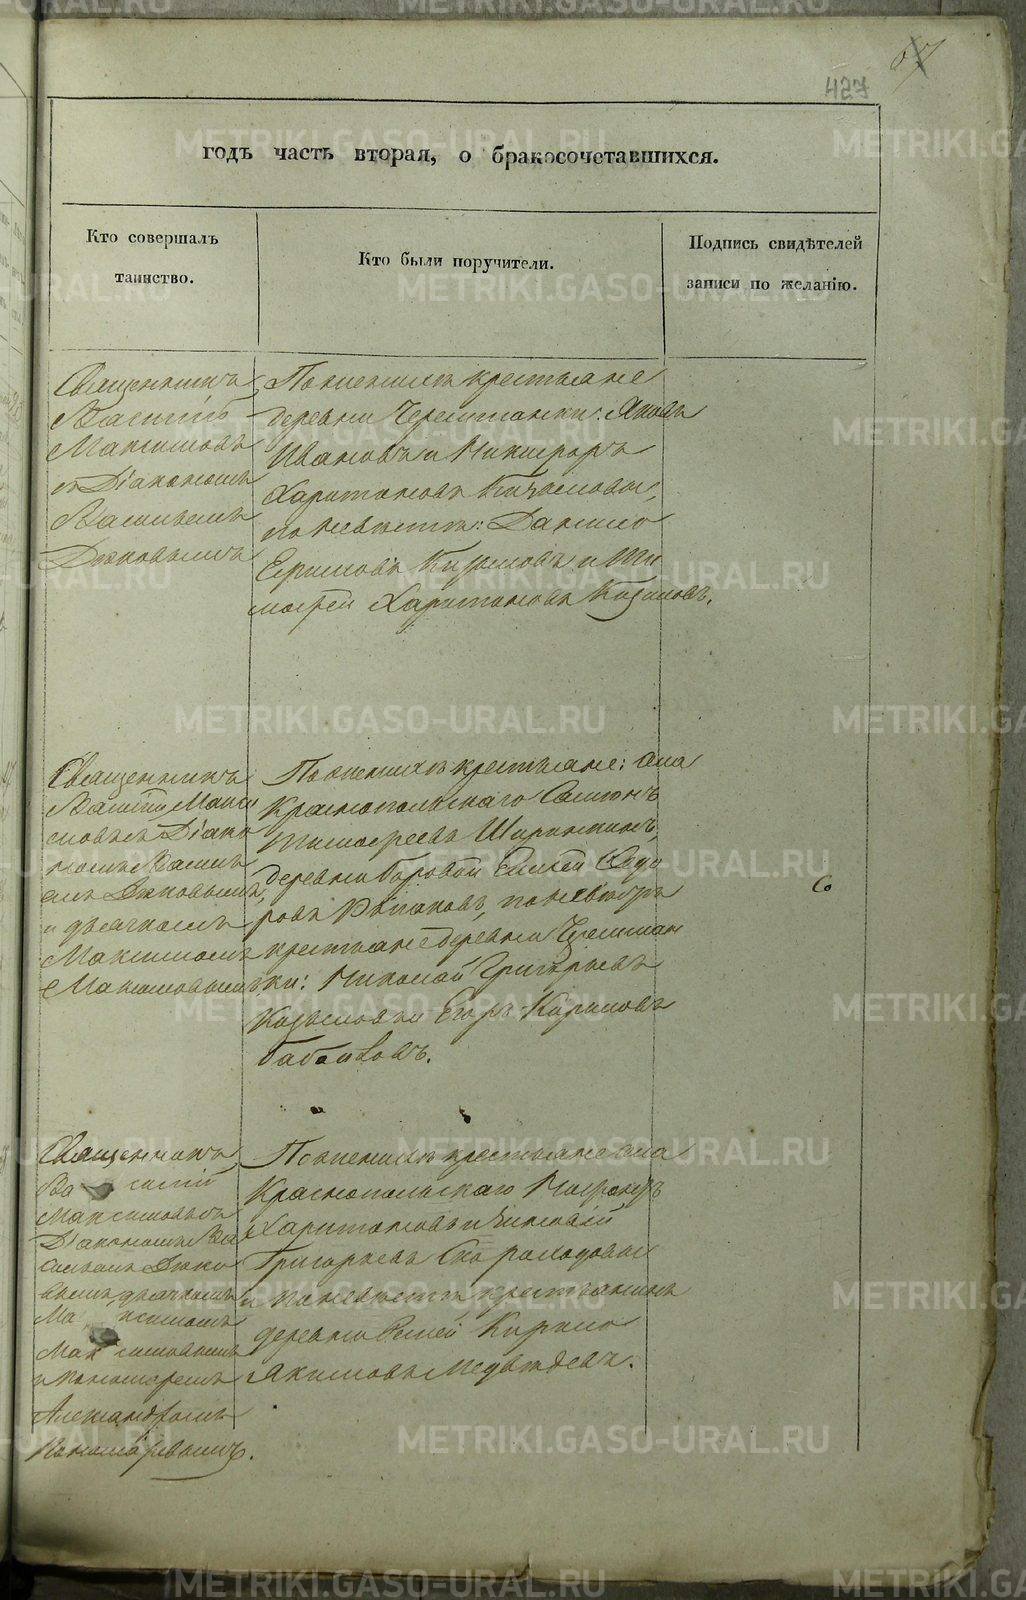 67
427
годъ часть вторая, о бракосочетавшихся.
Кто совершалъ
таинство.
Кто были поручители.
Подпись свидѣтелей
записи по желанію.
Священникъ
Василій
Максимовъ
съ Діакономъ
Васильемъ
Дюковымъ
По женихѣ крестьяне
деревни Черемшанки: Яковъ
Ивановъ и Никифоръ
Харитоновъ
по невѣстѣ: Данило
Ефимовъ и Ти
мофей Харитоновъ
Священникъ
Василій Макси
мовъ съ Діако
номъ Василь
емъ Дюковымъ,
и дьячкомъ
Максимомъ
По женихѣ крестьяне: села
Краснопольскаго Симіонъ
Тимофеевъ
деревни Боровой Сидо
ровъ по невѣстѣ
крестьяне деревни Черемшан
ки: Николай Григорьевъ
и Егоръ Кириловъ
Священникъ
Василій
Максимовъ съ
Діакономъ Ва
сильемъ Дюко
вымъ дьячкомъ
Максимомъ
и пономаремъ
Александромъ
Пономаревымъ.
По женихѣ крестьяне села
Краснопольскаго Никифоръ
Харитоновъ и Зиновій
Григорьевъ Скороходовы
и по невѣстѣ крестьянинъ
деревни Кирило
Якимовъ Медвѣдевъ.
METRIKI.GASO-URAL.RU